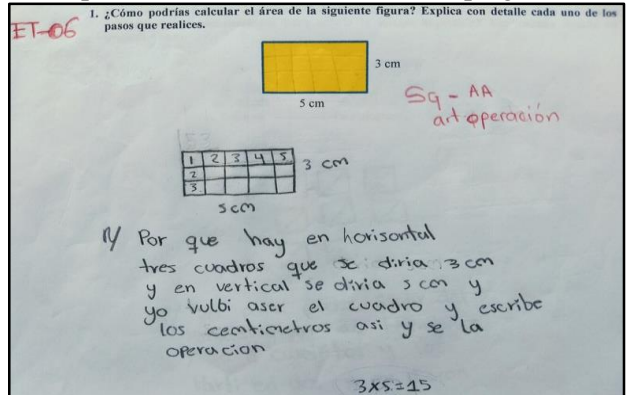 1. ¿Cómo podrías calcular el área de la siguiente figura? Explica con detalle cada uno de los
pasos que realices.
ET-06
3 cm
5 cm
Sg - AA
art operación
1 2 3 4 5
2
3
3 cm
5 cm
R/ Por que hay en horisontal
tres cuadros que se diria 3 cm
y en vertical se diria 5 cm y
yo vulbi aser el cuadro y escribe
los centimetros asi y se la
operacion
3x5=15